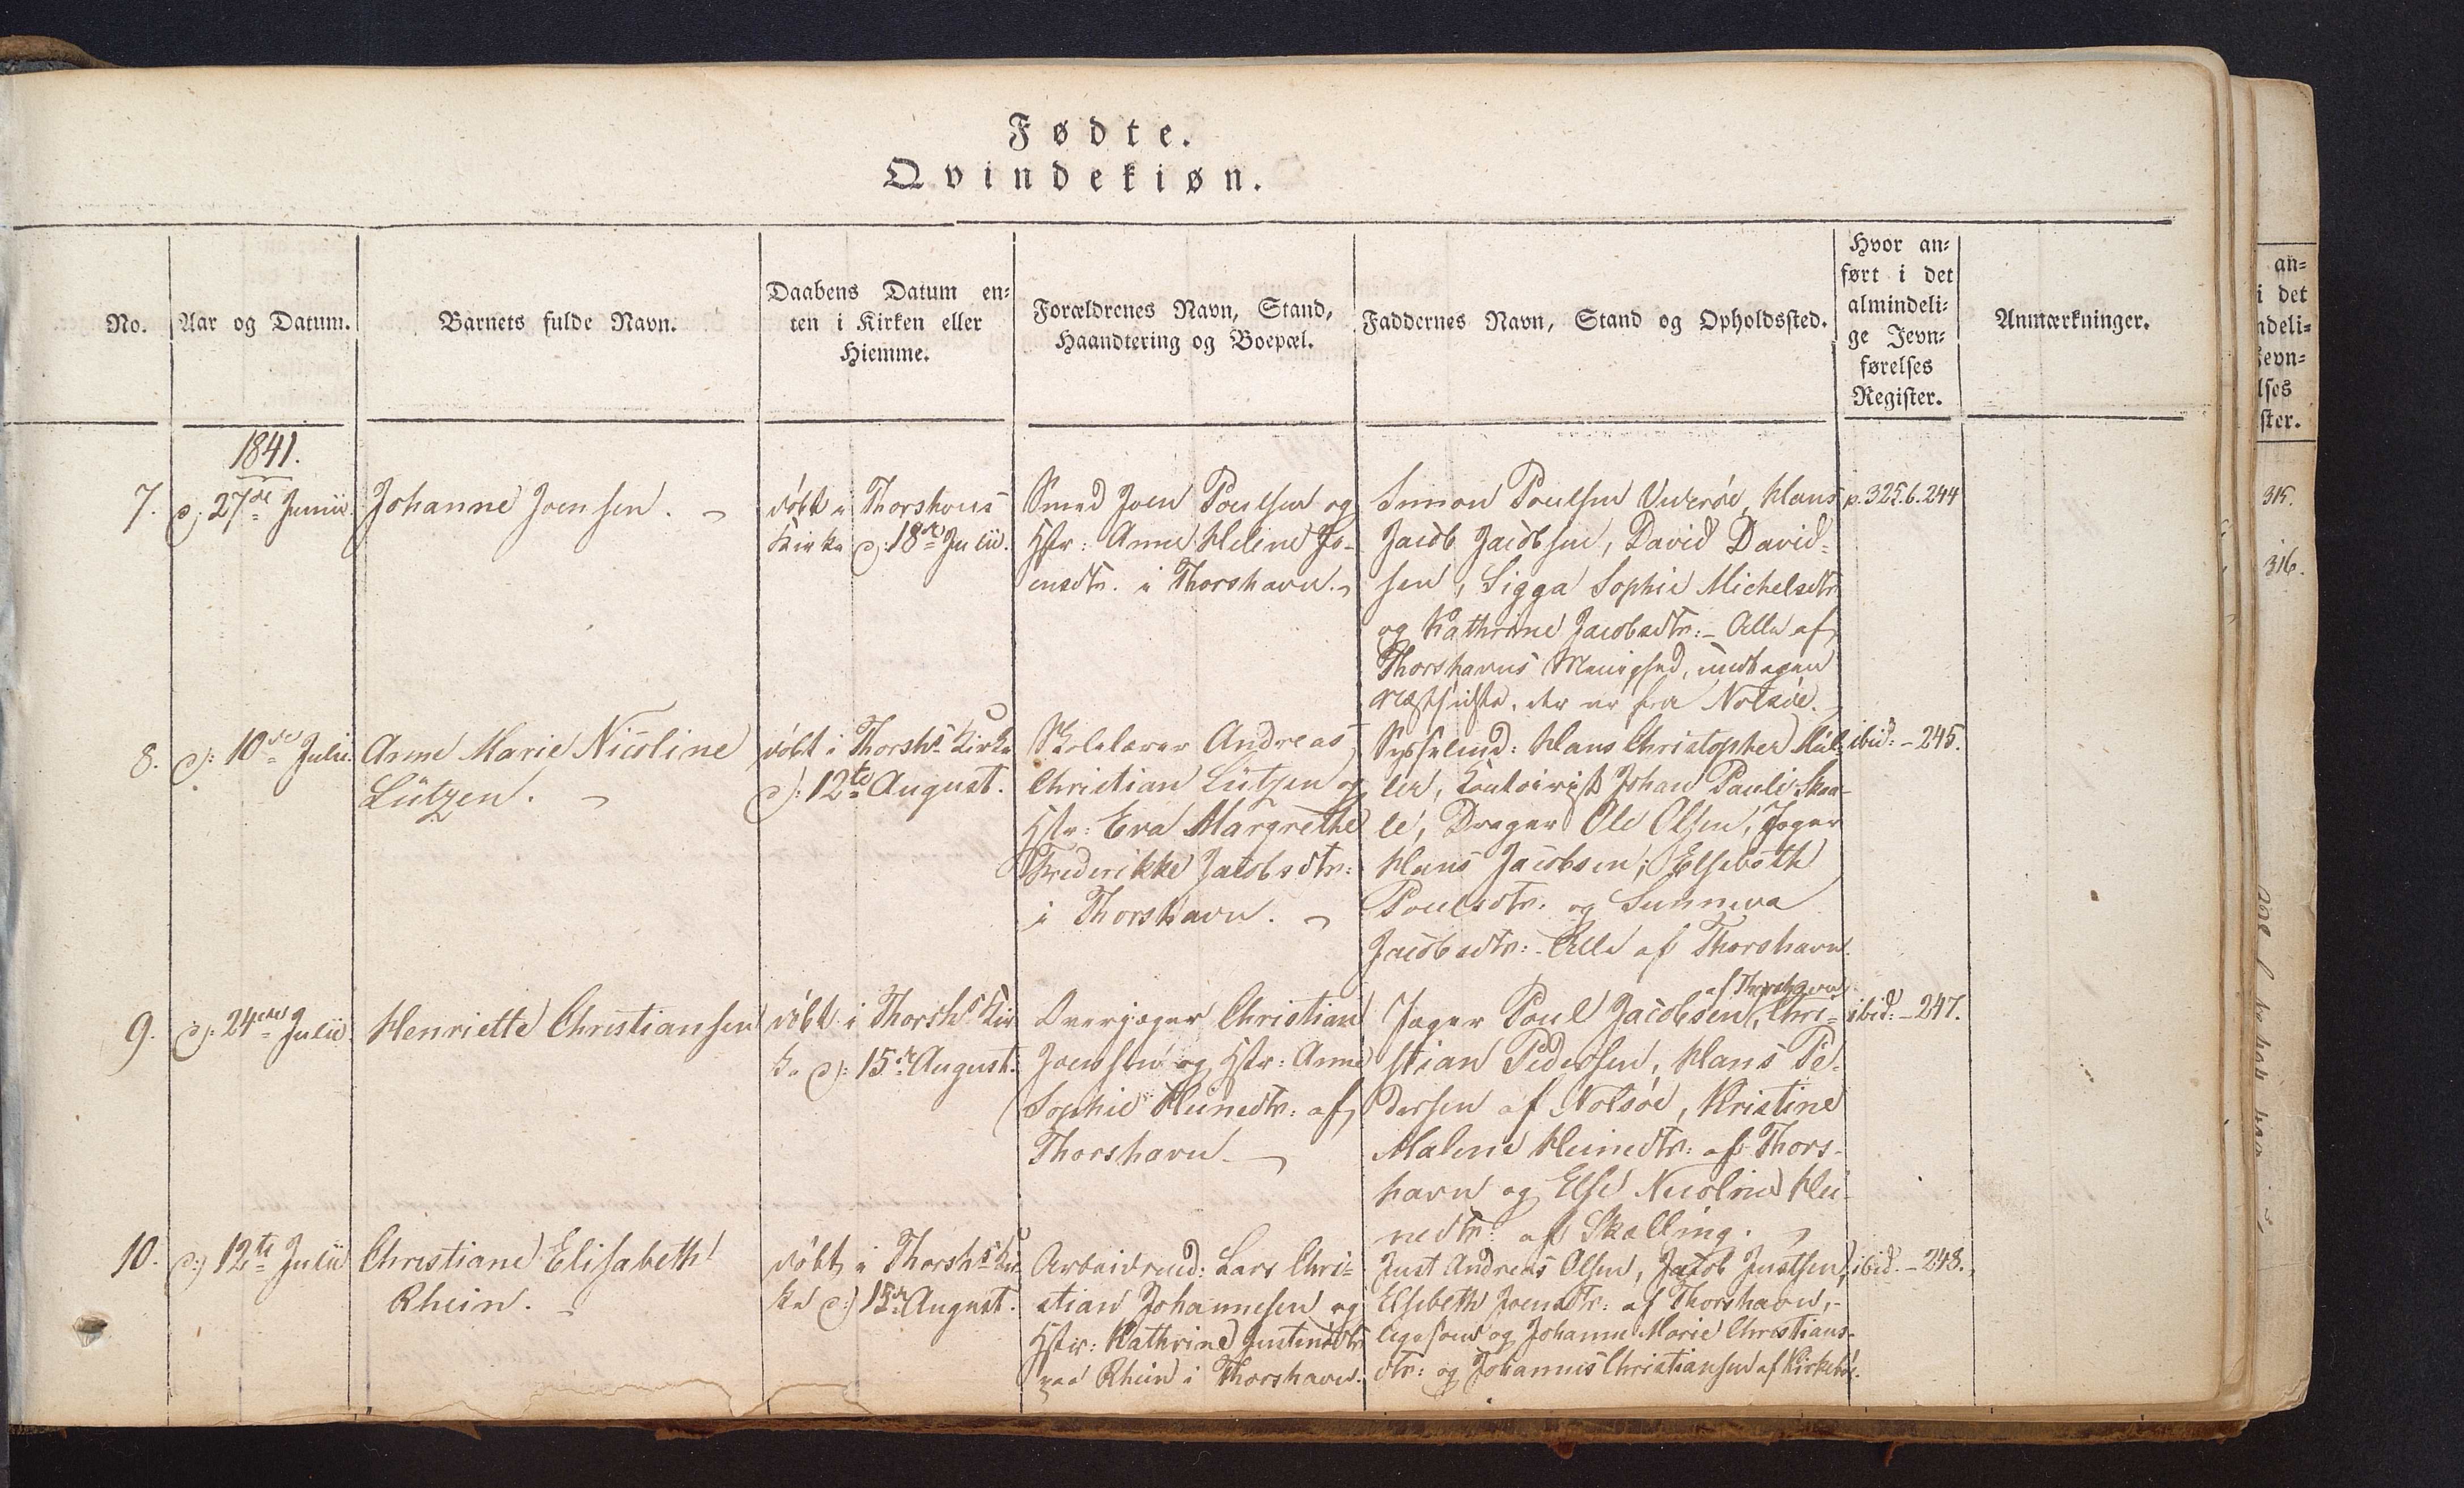 Fødte.
Qvindekiøn.
No.
Aar og Datum.
Barnets fulde Navn.
Daabens Datum en-
ten i Kirken eller
Hiemme.
Forældrenes Navn, Stand,
Haandtering og Boepæl.
Faddernes Navn, Stand og Opholdssted.
Hvor an-
ført i det
almindeli-
ge Jevn-
førelses
Register.
Anmærkninger.
1841.
7.
d: 27de Junii
Johanne Joensen.
døbt i Thorshavns
Kirke d: 18de Julii.
Smed Joen Poulsen og
Hstr: Anne Helene Jo-
ensdtr. i Thorshavn.
Simon Poulsen Viderøe, Hans
Jacob Jacobsen, David David-
sen, Sigga Sophie Michelsdtr
og Kathrine Jacobsdtr: - Alle af
Thorshavns Menighed, undtagen
næstsidste, der er fra Nolsøe.
p. 325. 6. 244
8.
d: 10de Julii
Anne Marie Nicoline
Lützen.
døbt i Thorshs Kirke
d: 12te August.
Skolelærer Andreas
Christian Lützen og
Hstr: Eva Margrethe
Frederikke Jacobsdtr:
i Thorshavn.
Sysselmd: Hans Christopher Mül-
ler, Contoirist Johan Pauli Skaa-
le, Drager Ole Olsen, Jæger
Hans Jacobsen; Elsebeth
Poulsdtr. og Sunneva
Jacobsdtr: - Alle af Thorshavn.
ibid: - 245.
9.
d: 24de Julii
Henriette Christiansen
døbt i Thorshs Kir
ke d: 15de August.
Overjæger Christian
Joensen og Hstr: Anne
Sophie Heinedtr: af
Thorshavn
af Thorshavn
Jæger Poul Jacobsen, Chri-
stian Pedersen, Hans Pe-
dersen af Nolsøe, Kristine
Malene Heinedtr: af Thors-
havn og Else Nicoline Hei-
nedtr: af Skælling.
ibid: - 247.
10.
d: 12te Julii
Christiane Elisabeth
Rhein.
døbt i Thorshs Kir
ke d: 15de August.
Arbeidsmd: Lars Chri-
stian Johannesen og
Hstr: Kathrine Justinedtr
paa Rhein i Thorshavn.
Just Andreas Olsen, Jacob Justsen,
Elsebeth Joensdtr: af Thorshavn,-
ligesom og Johanne Marie Christians-
dtr: og Johannes Christiansen af Kirkebøe.
ibid. - 248.
an-
i det
ndeli-
Jevn-
lses
ster.
315.
316.